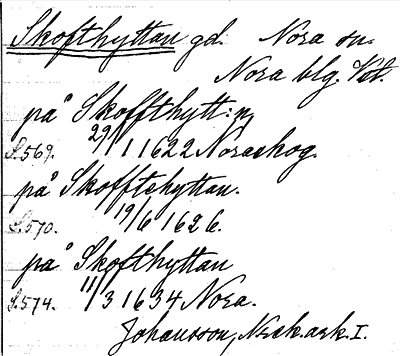 Skofthyttan gd. Nora sn.
Nora blg. Vstl.
på Skoffthytt:n
S.569. 29/1 1622 Noraskog.
på Skofftehyttan.
S.570. 19/6 1626.
på Skofthyttan
S.574. 11/3 1634 Nora.
Johansson, Nzak.ark. I.